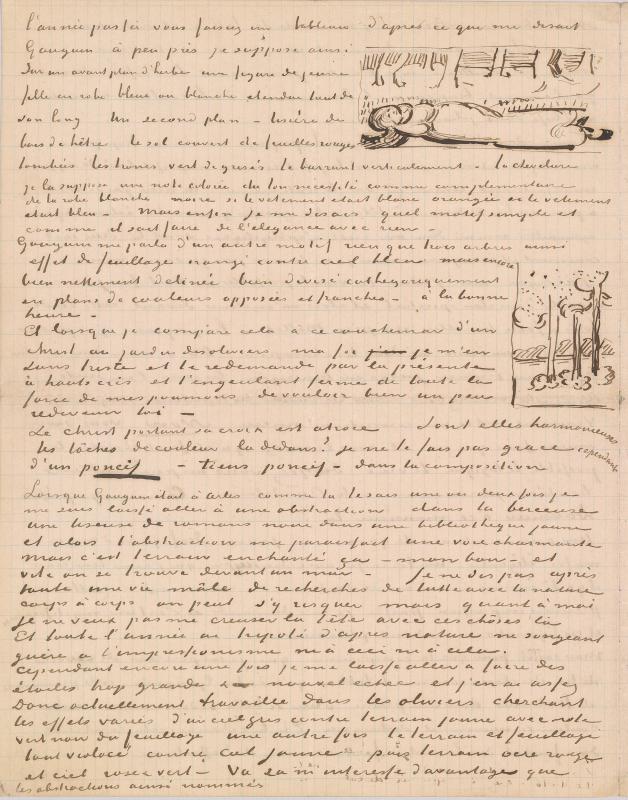 l'année passée vous faisiez un tableau d'après ce que me disait
Gauguin à peu près je suppose ainsi
Sur un avant plan d'herbe une figure de jeune
fille en robe bleue ou blanche etendue tout de
son long Un second plan – lisière de
bois de hêtre le sol couvert de feuilles rouges
tombées les troncs vert de grisés le barrant verticalement – la chevelure
je la suppose une note colorée du ton nécessité comme complementaire
de la robe blanche noire si le vetement etait blanc orangée si le vetement
etait bleu – Mais enfin je me disais quel motif simple et
comme il sait faire de l'élegance avec rien –
Gauguin me parla d'un autre motif rien que trois arbres ainsi
effet de feuillage orangé contre ciel bleu mais encore
bien nettement délinée bien divisé cathegoriquement
en plans de couleurs opposées et franches – à la bonne
heure –
Et lorsque je compare cela à ce cauchemar d'un
christ au jardin des oliviers ma foi je m'en
sens triste et te redemande par la présente
à hauts cris et t'engeulant ferme de toute la
force de mes poumons de vouloir bien un peu
redevenir toi –
Le Christ portant sa croix est atroce Sont elles harmonieuses
les tâches de couleur là dedans? je ne te fais pas grace cependant
d'un poncif – tiens poncif – dans la composition
Lorsque Gauguin était à Arles comme tu le sais une ou deux fois je
me suis laissé aller à une abstraction dans la berceuse
une liseuse de romans noire dans une bibliothèque jaune
et alors l'abstraction me paraissait une voie charmante
Mais c'est terrain enchanté ça – mon bon – et
vite on se trouve devant un mur – Je ne dis pas après
toute une vie mâle de recherches de lutte avec la nature
corps à corps on peut s'y risquer mais quant à moi
je ne veux pas me creuser la tête avec ces choses là
Et toute l'année ai tripoté d'après nature ne songeant
guère à l'impressionisme ni à ceci ni à cela.
Cependant encore une fois je me laisse aller à faire des
étoiles trop grandes nouvel echec et j'en ai assez
Donc actuellement travaille dans les oliviers cherchant
les effets variés d'un ciel gris contre terrain jaune avec note
vert noir du feuillage une autre fois le terrain et feuillage
tout violacé contre ciel jaune puis terrain ocre rouge
et ciel rose vert – Va ça m'interesse davantage que
les abstractions ainsi nommées